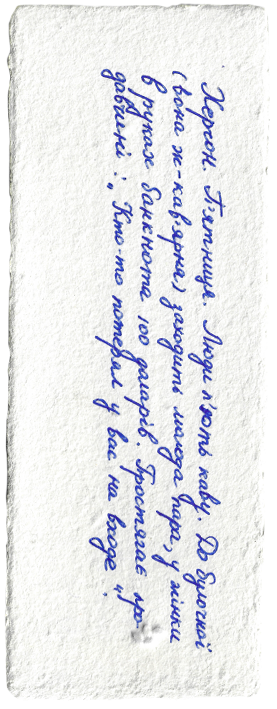 Херсон. П'ятниця. Люди п'ють каву. До булочної
(вона ж - кав'ярня) заходить молода пара, у жінки
в руках банкнота 100 доларів. Простягає про-
давчині: „Кто-то потерял у вас на входе".